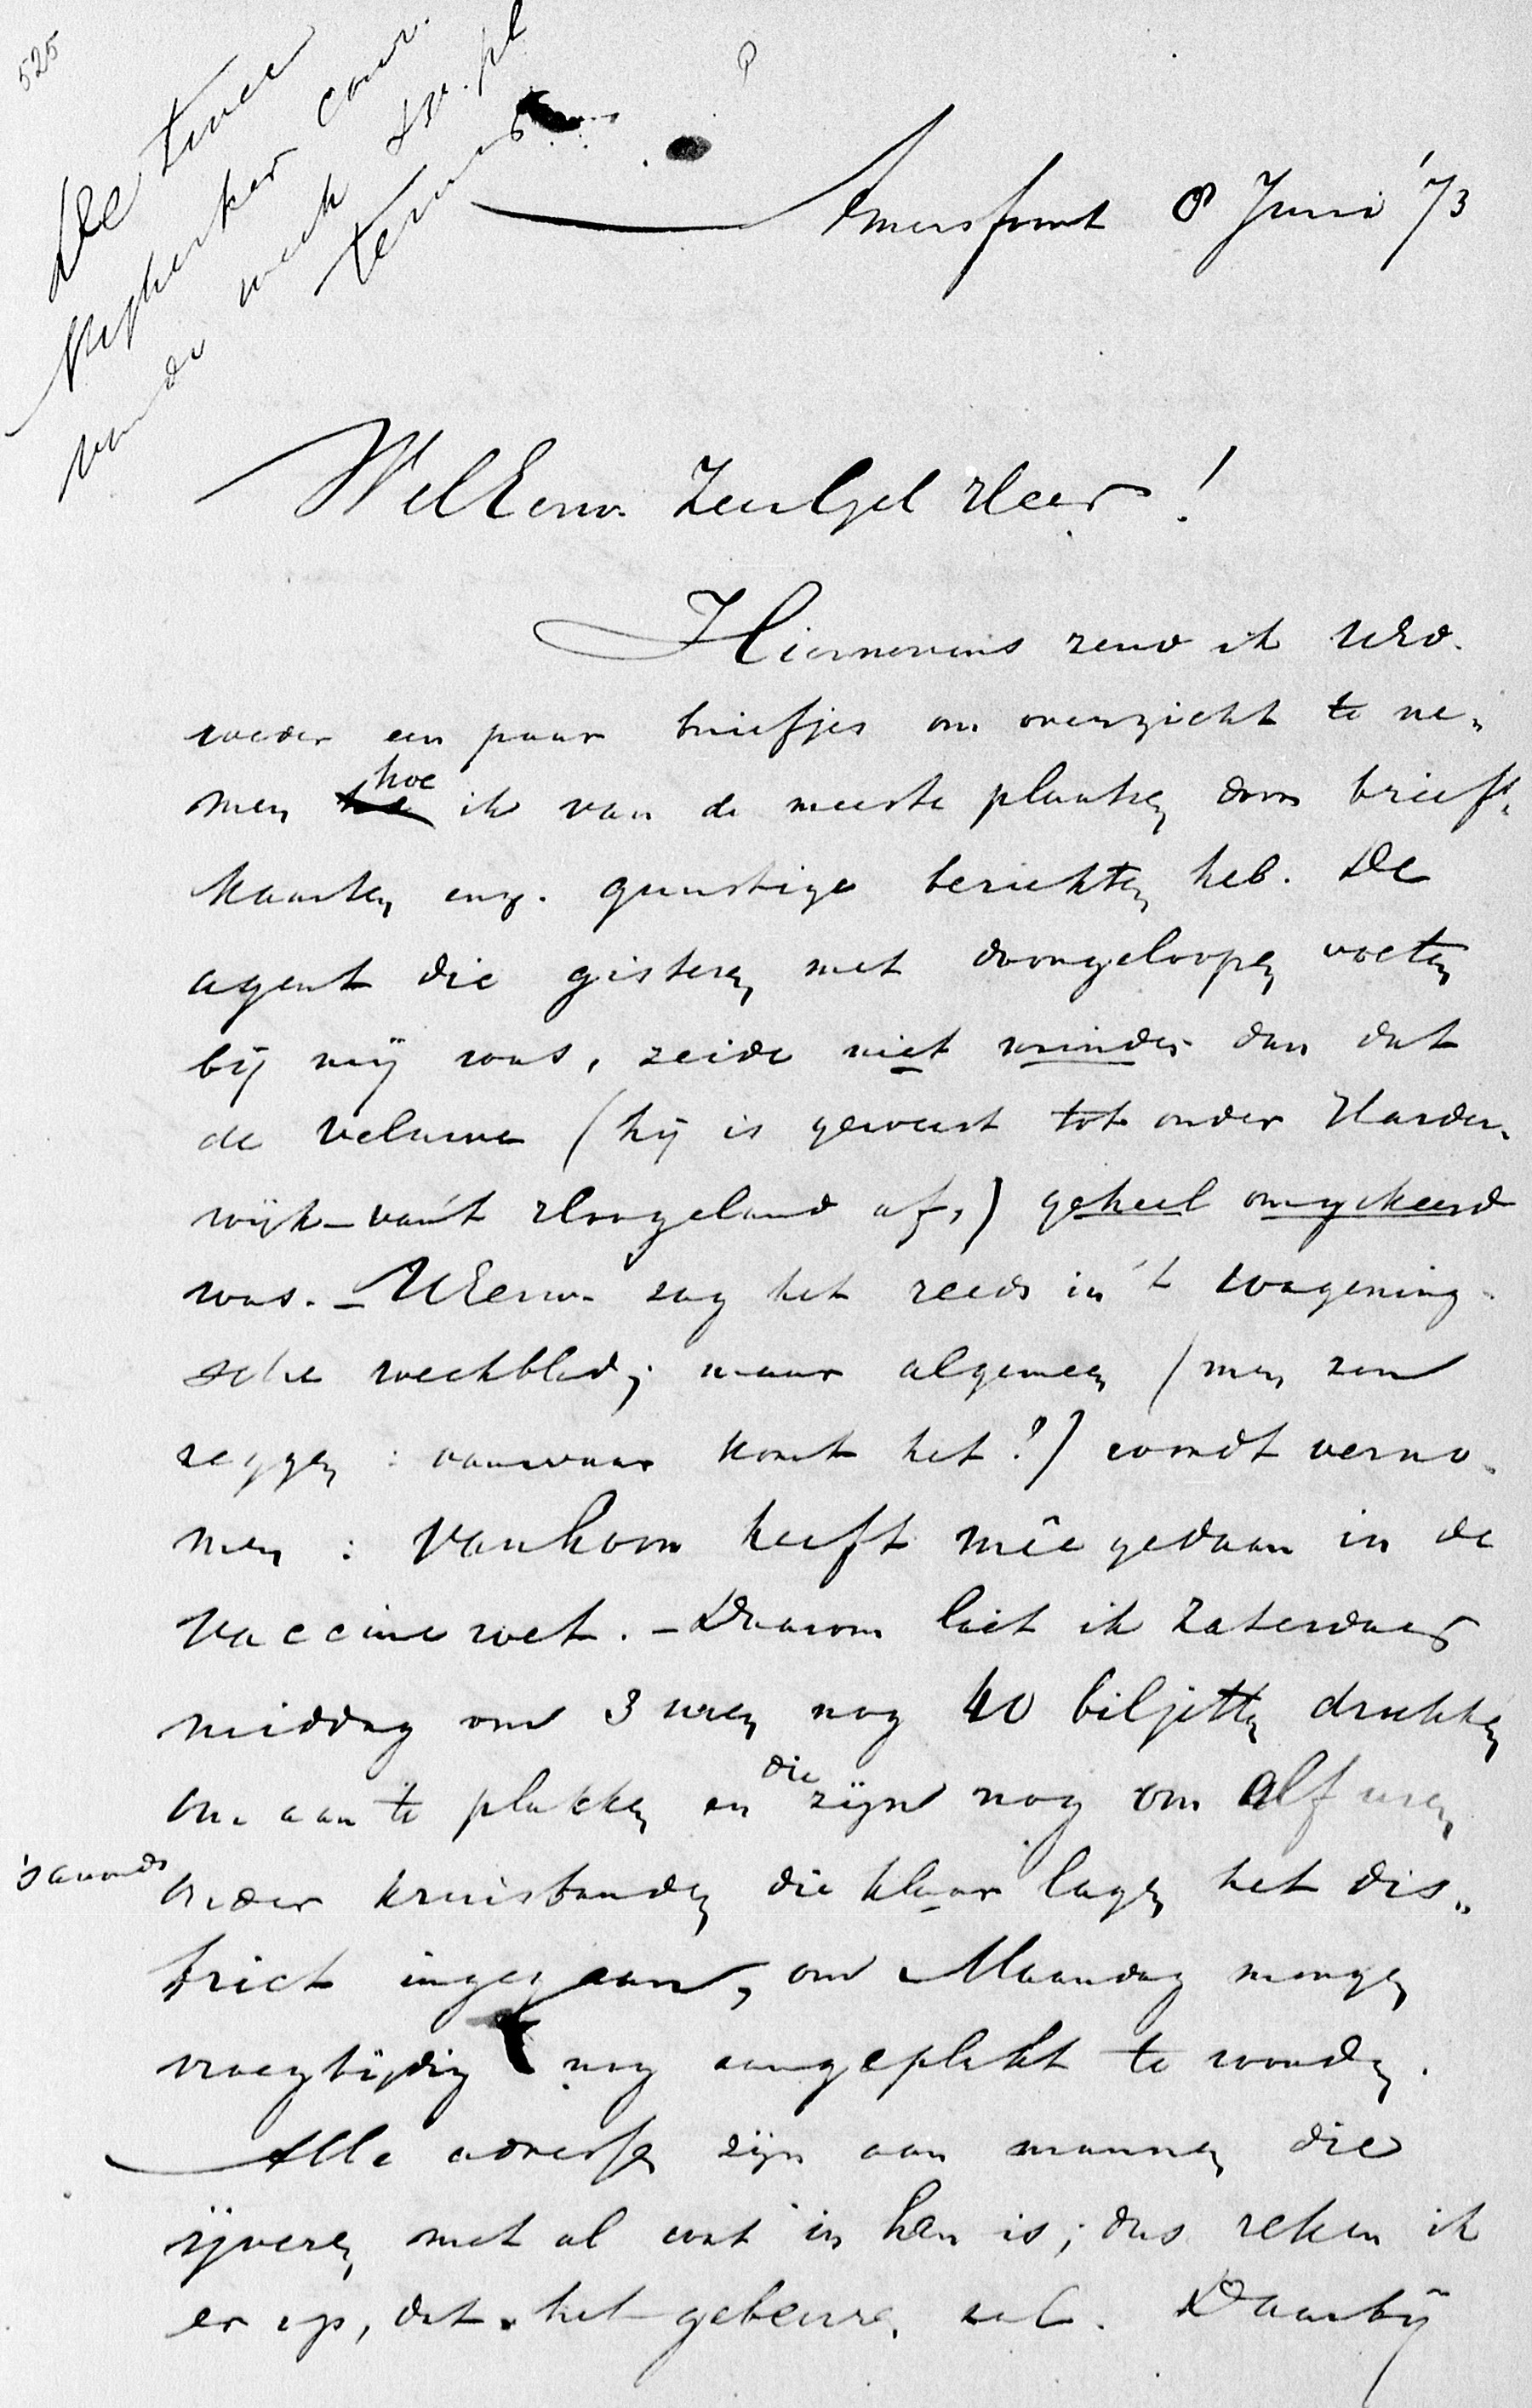 525
De twee
Nijkerker cour.
van de week s.v.pl
terug
Amersfoort 8 Juni '73
WelEerw. ZeerlGel Heer!
Hiernevens zend ik UEd.
weder een paar briefjes om overzicht te ne-
men hoe ik van de meeste plaatsen door brief-
kaarten enz. gunstige berichten heb. De
agent die gisteren met doorgeloopen voeten
bij mij was, zeide niet minder dan dat
de Veluwe (hij is geweest tot onder Harder-
wijk - van 't Hoogeland af,) geheel omgekeerd
was. - UEerw. zag het reeds in 't Wagening-
sche weekblad; maar algemeen (men zou
zeggen: vanwaar komt het?) wordt verno-
men: van Loon heeft mêegedaan in de
Vaccine wet. - Daarom liet ik Zaterdag
middag om 3 uren nog 40 biljetten drukken
om aan te plakken en die zijn nog om elf uren
's avonds onder kruisbanden die klaar lagen het dis-
trict ingegaan, om Maandag morgen
vroegtijdig nog aangeplakt te worden.
Alle adressen zijn aan mannen die
ijveren met al wat in hen is; dus reken ik
er op, dat het gebeuren zal. Daarbij